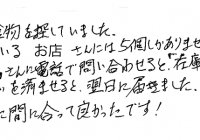 金物を探していました。
いる お店 さんには5個しかありませ
さんに電話で問い合わせると、在庫
を済ませると、翌日に届きました。
に間に合って良かったです！